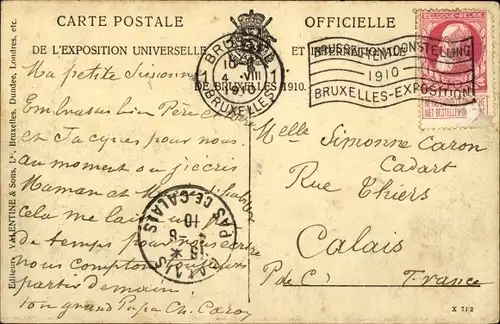 CARTE POSTALE OFFICIELLE
DE L'EXPOSITION UNIVERSELLE ET INTERNATIONALE
DE BRUXELLES 1910.
BRUXELLES
1 4 VIII 1
BRUXELLES
BRUSSEL-TENTOONSTELLING
1910
BRUXELLES-EXPOSITION
BELGIQUE-BELGIË
NIET BESTELLEN OP
Ma petite Simonne
Embrasse bien Père
et Jacques pour nous.
au moment où j'écris
Maman et
Cela me laisse un
de temps pour
nous comptons
partir demain.
ton grand Papa Ch. Caron
Melle Simonne Caron
Cadart
Rue Thiers
Calais
P. de C. France
CALAIS
PAS DE CALAIS
10
Editeurs VALENTINE & Sons, Ld. Bruxelles, Dundee, Londres, etc.